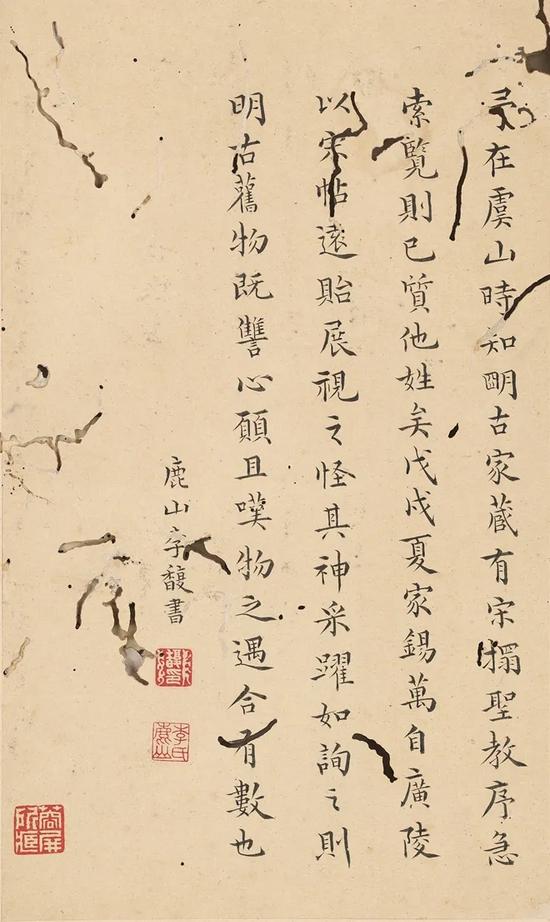 在虞山時知明古家藏有宋搨聖教序急
索覽則已質他姓矣戊戌夏家錫萬自廣陵
以宋帖遠貽展視之怪其神采躍如詢之則
明古舊物既讐心願且嘆物之遇合有數也
鹿山李馥書
李氏鹿山